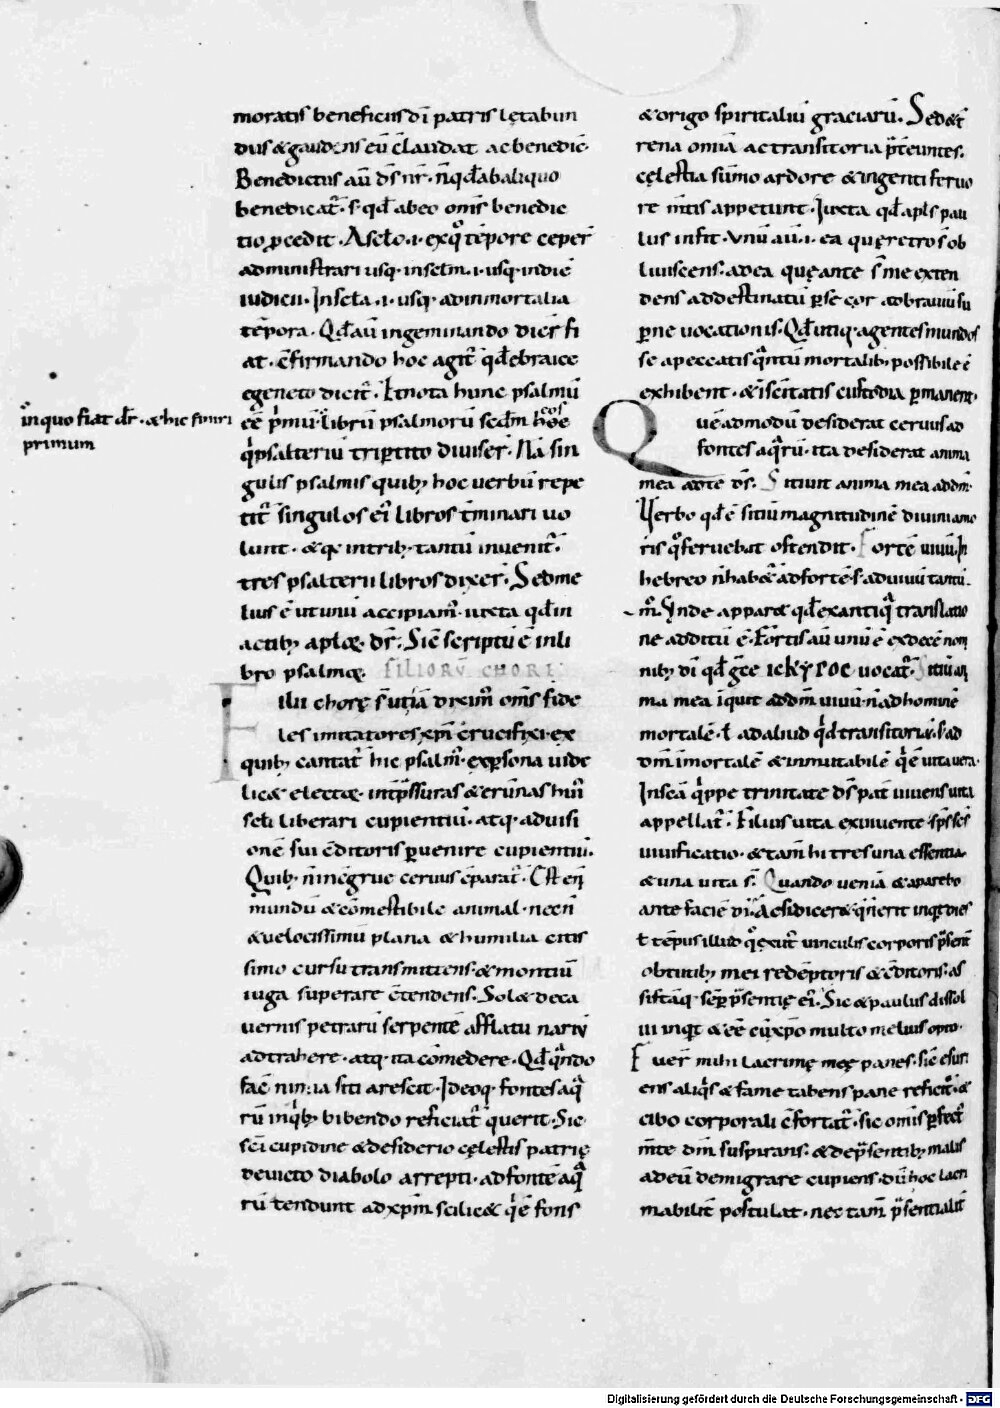 moratis beneficiis dī patris lętabun
dus & gaudens eū c̄laudat ac benedic̄.
Benedictus aū d̄s n̄r. n̄ qđ ab aliquo
benedicat᷑. s. qđ ab eo om̄s benedic
tio ꝓcedit. A sc̄lo .i. ex qͦ tēpore ceper̄
administrari usq; in sc̄lm̄ .i. usq; in diē
iudicii. In sc̄la .i. usq; ad inmortalia
tēpora. Qđ aū ingeminando dicit᷑ fi
at. c̄firmando hoc agit᷑ qđ ebraice
egeneto dicit᷑. Et nota hunc psalmū
in quo fiat dr̄. & hic finiri
primum
ēē p̄mū librū psalmorū scd̄m hos
eos
qͥ psalteriū tripertito diviser̄. Nā sin
gulis psalmis quib; hoc verbū repe
tit᷑ singulos ei᷑ libros t̄minari vo
lunt. & qͥ in trib; tantū invenit᷑.
tres psalterii libros dixer̄. Sed me
lius ē ut unū accipiam᷑. iuxta qđ in
actib; aplo᷑. dr̄. Sic scriptū ē in li
bro psalmo᷑. FILIORŪ CHORE:
Filii chorę s̄ uṭiā diximꝰ om̄s fide
les imitatores xp̄m crucifixi. ex
quib; cantat᷑ hic psalmꝰ. ex ꝑsona vide
lic& electo᷑. int̄ p̄ssuras & erūnas huiꝰ
sc̄li liberari cupientiū. atq; ad visi
onē sui c̄ditoris ꝑvenire cupientiū.
Quib; n̄ incgrue cervus c̄parat᷑. Est eni᷑
mundū & comestibile animal. necn̄
& velocissimū plana & humilia citis
simo cursu transmittens. & montiū
iuga superare c̄tendens. Sol& de ca
vernis petrarū serpentē afflatu nariū
adtrahere. atq; ita cōmedere. Qđ qͣndo
fac̄ nimia siti arescit. Ideoq; fontes aqͣ
rū in qͥb; bibendo reficiat᷑ querit. Sic
sc̄i cupidine & desiderio cęlestis patrię
devicto diabolo arrepti. ad fontē aqͣ
rū tendunt ad xp̄m̄ scilic& qͥ ē fons
& origo spiritaliū graciarū. Sed &t̄
rena om̄ia ac transitoria p̄t̄euntes.
cęlestia sūmo ardore & ingenti fervo
re m̄tis appetunt. Iuxta qđ apl̄s pau
lus infit. Unū aū .i. ea quę retro s̄ ob
liviscens. ad ea quę ante s̄ me exten
dens ad destinatū ꝑsecor ad bravū su
ꝑne vocationis. Qđ utiq; agentes mundos
se a peccatis qͣntū mortalib; possibile ē
exhibent. & i scītatis custodia ꝑmanent.
Quēadmodū desiderat cervus ad
fontes aqͣrū. ita desiderat anima
mea ad te d̄s. Sitivit anima mea ad dm̄.
Verbo qđ ē sitiū magnitudinē divini amo
ris qͦ fervebat ostendit. Fortē vivū. In
hebreo n̄ hab&᷑ ad fortē. s. ad vivū tantū
m̊. Unde appar& qđ ex antiqͣ translatio
ne additū ē. Fortis aū unū ē ex decē nom
nib; dī qđ gc̄e ICKYROC vocat᷑. Sitiū an
ma mea inquit ad dm̄ vivū. n̄ ad hominē
mortalē. ł ad aliud qͥd transitoriū. s. ad
dm̄ īmortalē & inmutabilē qͥ ē vita vera.
In sc̄a qͥppe trinitate d̄s pat̄ vivens vita
appellat᷑. Filius vita ex vivente. sp̄s sc̄s
vivificatio. & tam̄ hi tres una essentia
& una vita s̄. Quando veniā & aparebo
ante faciē dī. Ac si dicer& qͣn̄ erit inqͥt dies
ł tēpus illud qͦ exut᷑ vinculis corporis p̄sent̄
obtutib; mei redēptoris & c̄ditoris. as
sistāq; sēꝑ p̄sentię ei᷑. Sic & paulus dissol
vi inqͥt & ēē cū xp̄o multo melius opto.
Fuer̄ mihi lacrimę meę panes. sic esuri
ens aliqͥs & fame tabens pane reficit᷑. &
cibo corporali c̄fortat᷑. sic om̄is ꝑfect᷑
m̄te dm̄ suspirans. & de p̄sentib; malis
ad eū demigrare cupiens. dū hoc lacri
mabilit̄ postulat. nec tam̄ p̄sentialit̄
Digitalisierung gefördert durch die Deutsche Forschungsgemeinschaft - DFG